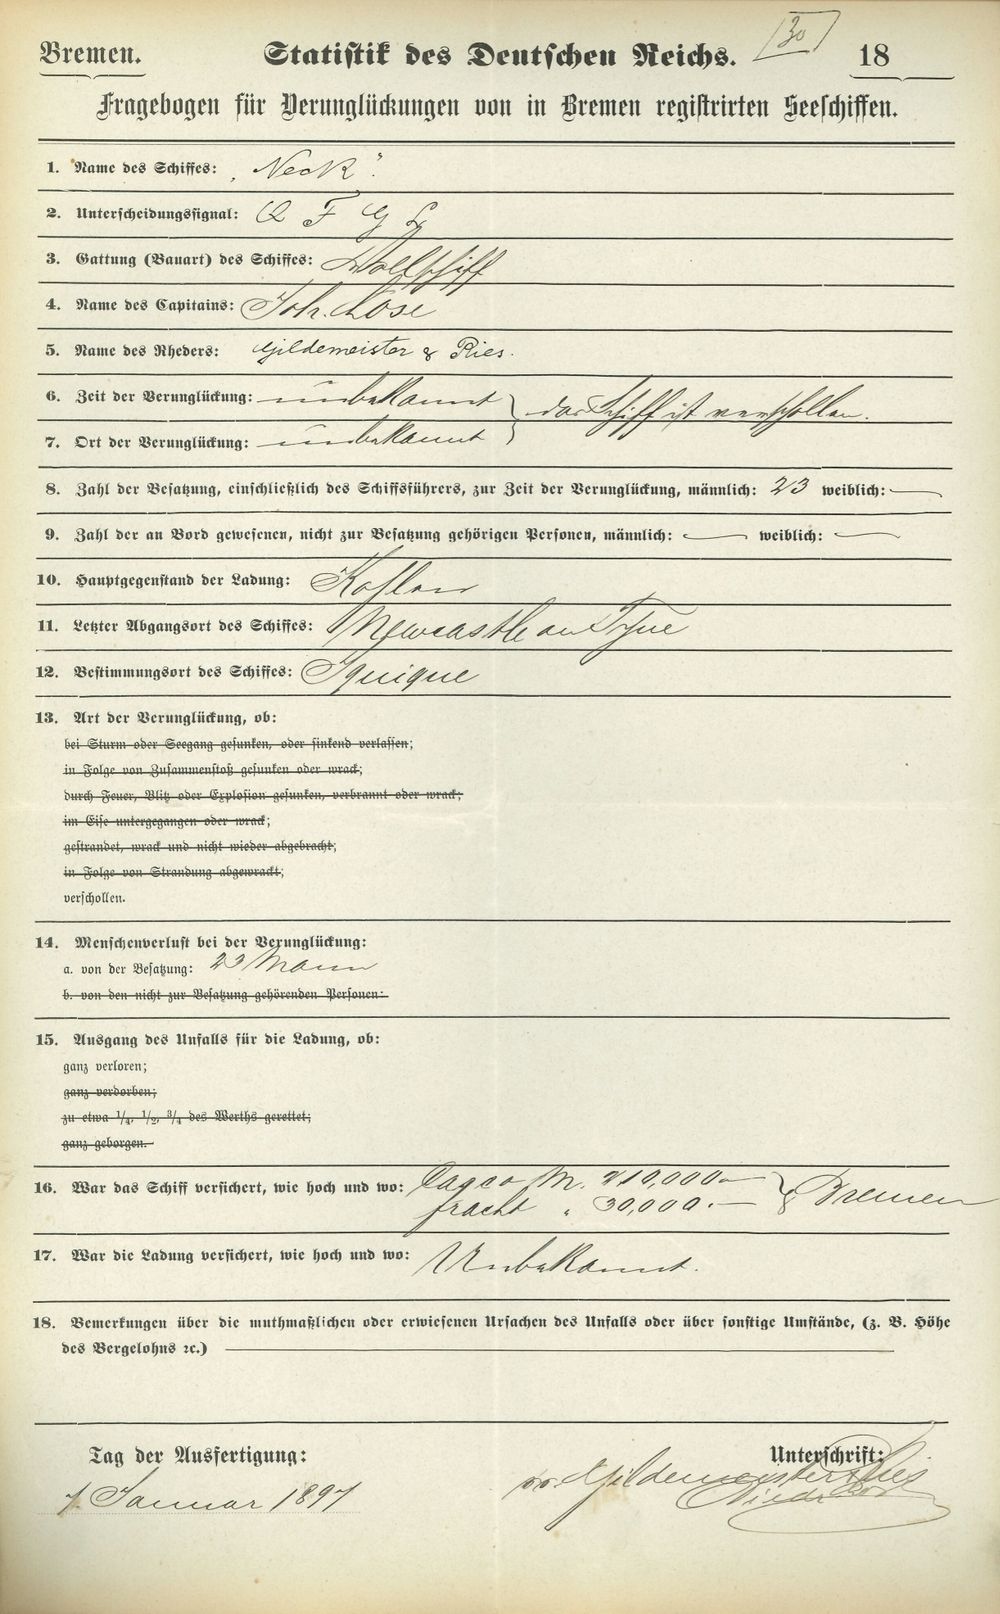 30
Bremen. Statistik des Deutschen Reichs. 18
Fragebogen für Verunglückungen von in Bremen registrirten Seeschiffen.
1. Name des Schiffes: „Neck“.
2. Unterscheidungssignal: Q F G L
3. Gattung (Bauart) des Schiffes: Vollschiff
4. Name des Capitains: Joh. Lose
5. Name des Rheders: Gildemeister & Ries.
6. Zeit der Verunglückung: unbekannt } das Schiff ist verschollen.
7. Ort der Verunglückung: unbekannt
8. Zahl der Besatzung, einschließlich des Schiffsführers, zur Zeit der Verunglückung, männlich: 23 weiblich: —
9. Zahl der an Bord gewesenen, nicht zur Besatzung gehörigen Personen, männlich: — weiblich: —
10. Hauptgegenstand der Ladung: Kohlen
11. Letzter Abgangsort des Schiffes: Newcastle on Tyne
12. Bestimmungsort des Schiffes: Iquique
13. Art der Verunglückung, ob:
bei Sturm oder Seegang gesunken, oder sinkend verlassen;
in Folge von Zusammenstoß gesunken oder wrack;
durch Feuer, Blitz oder Explosion gesunken, verbrannt oder wrack;
im Eise untergegangen oder wrack;
gestrandet, wrack und nicht wieder abgebracht;
in Folge von Strandung abgewrackt;
verschollen.
14. Menschenverlust bei der Verunglückung:
a. von der Besatzung: 23 Mann
b. von den nicht zur Besatzung gehörenden Personen:
15. Ausgang des Unfalls für die Ladung, ob:
ganz verloren;
ganz verdorben;
zu etwa 1/4, 1/2, 3/4 des Werths gerettet;
ganz geborgen.
16. War das Schiff versichert, wie hoch und wo: Casco M. 210,000.— } Bremen
Fracht „ 30,000.—
17. War die Ladung versichert, wie hoch und wo: Unbekannt.
18. Bemerkungen über die muthmaßlichen oder erwiesenen Ursachen des Unfalls oder über sonstige Umstände, (z. B. Höhe
des Bergelohns ꝛc.)
Tag der Ausfertigung: Unterschrift:
7. Januar 1897 Gildemeister & Ries